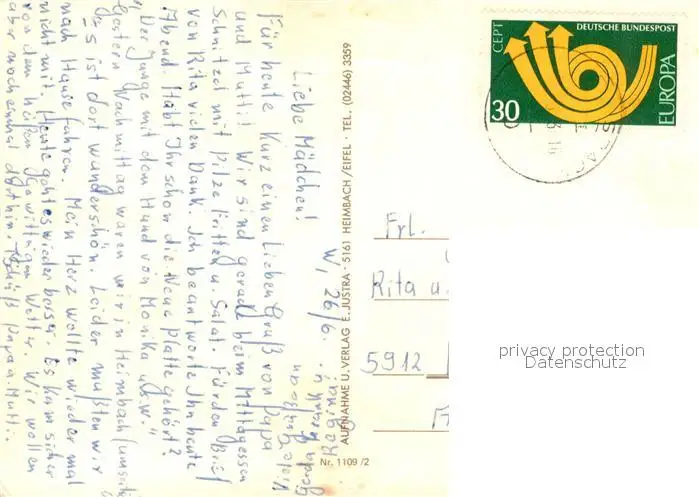 W, 26/6.
Liebe Mädchen!
Für heute kurz einen lieben Gruß von Papa
und Mutti! Wir sind gerade beim Mittagessen
Schnitzel mit Pilze Fritten u. Salat. Für den Brief
von Rita vielen Dank. Ich beantworte Ihn heute
Abend. Habt Ihr schon die Neue Platte gehört?
"Der Junge mit dem Hund von Monika usw."
Gestern Nachmittag waren wir in Heimbach (umseitig)
Es ist dort wunderschön. Leider mußten wir
nach Hause fahren. Mein Herz wollte wieder mal
nicht mit. Heute geht es wieder besser. Es kam sicher
von dem heißen Gewittrigen Wetter. Wir wollen
aber noch einmal dorthin. Tschüß Papa u. Mutti.
Regina!
AUFNAHME U. VERLAG E. JUSTRA · 5161 HEIMBACH/EIFEL · TEL. (02446) 3359
Nr. 1109/2
CEPT
DEUTSCHE BUNDESPOST
EUROPA
30
Frl.
Rita u.
5912
privacy protection
Datenschutz